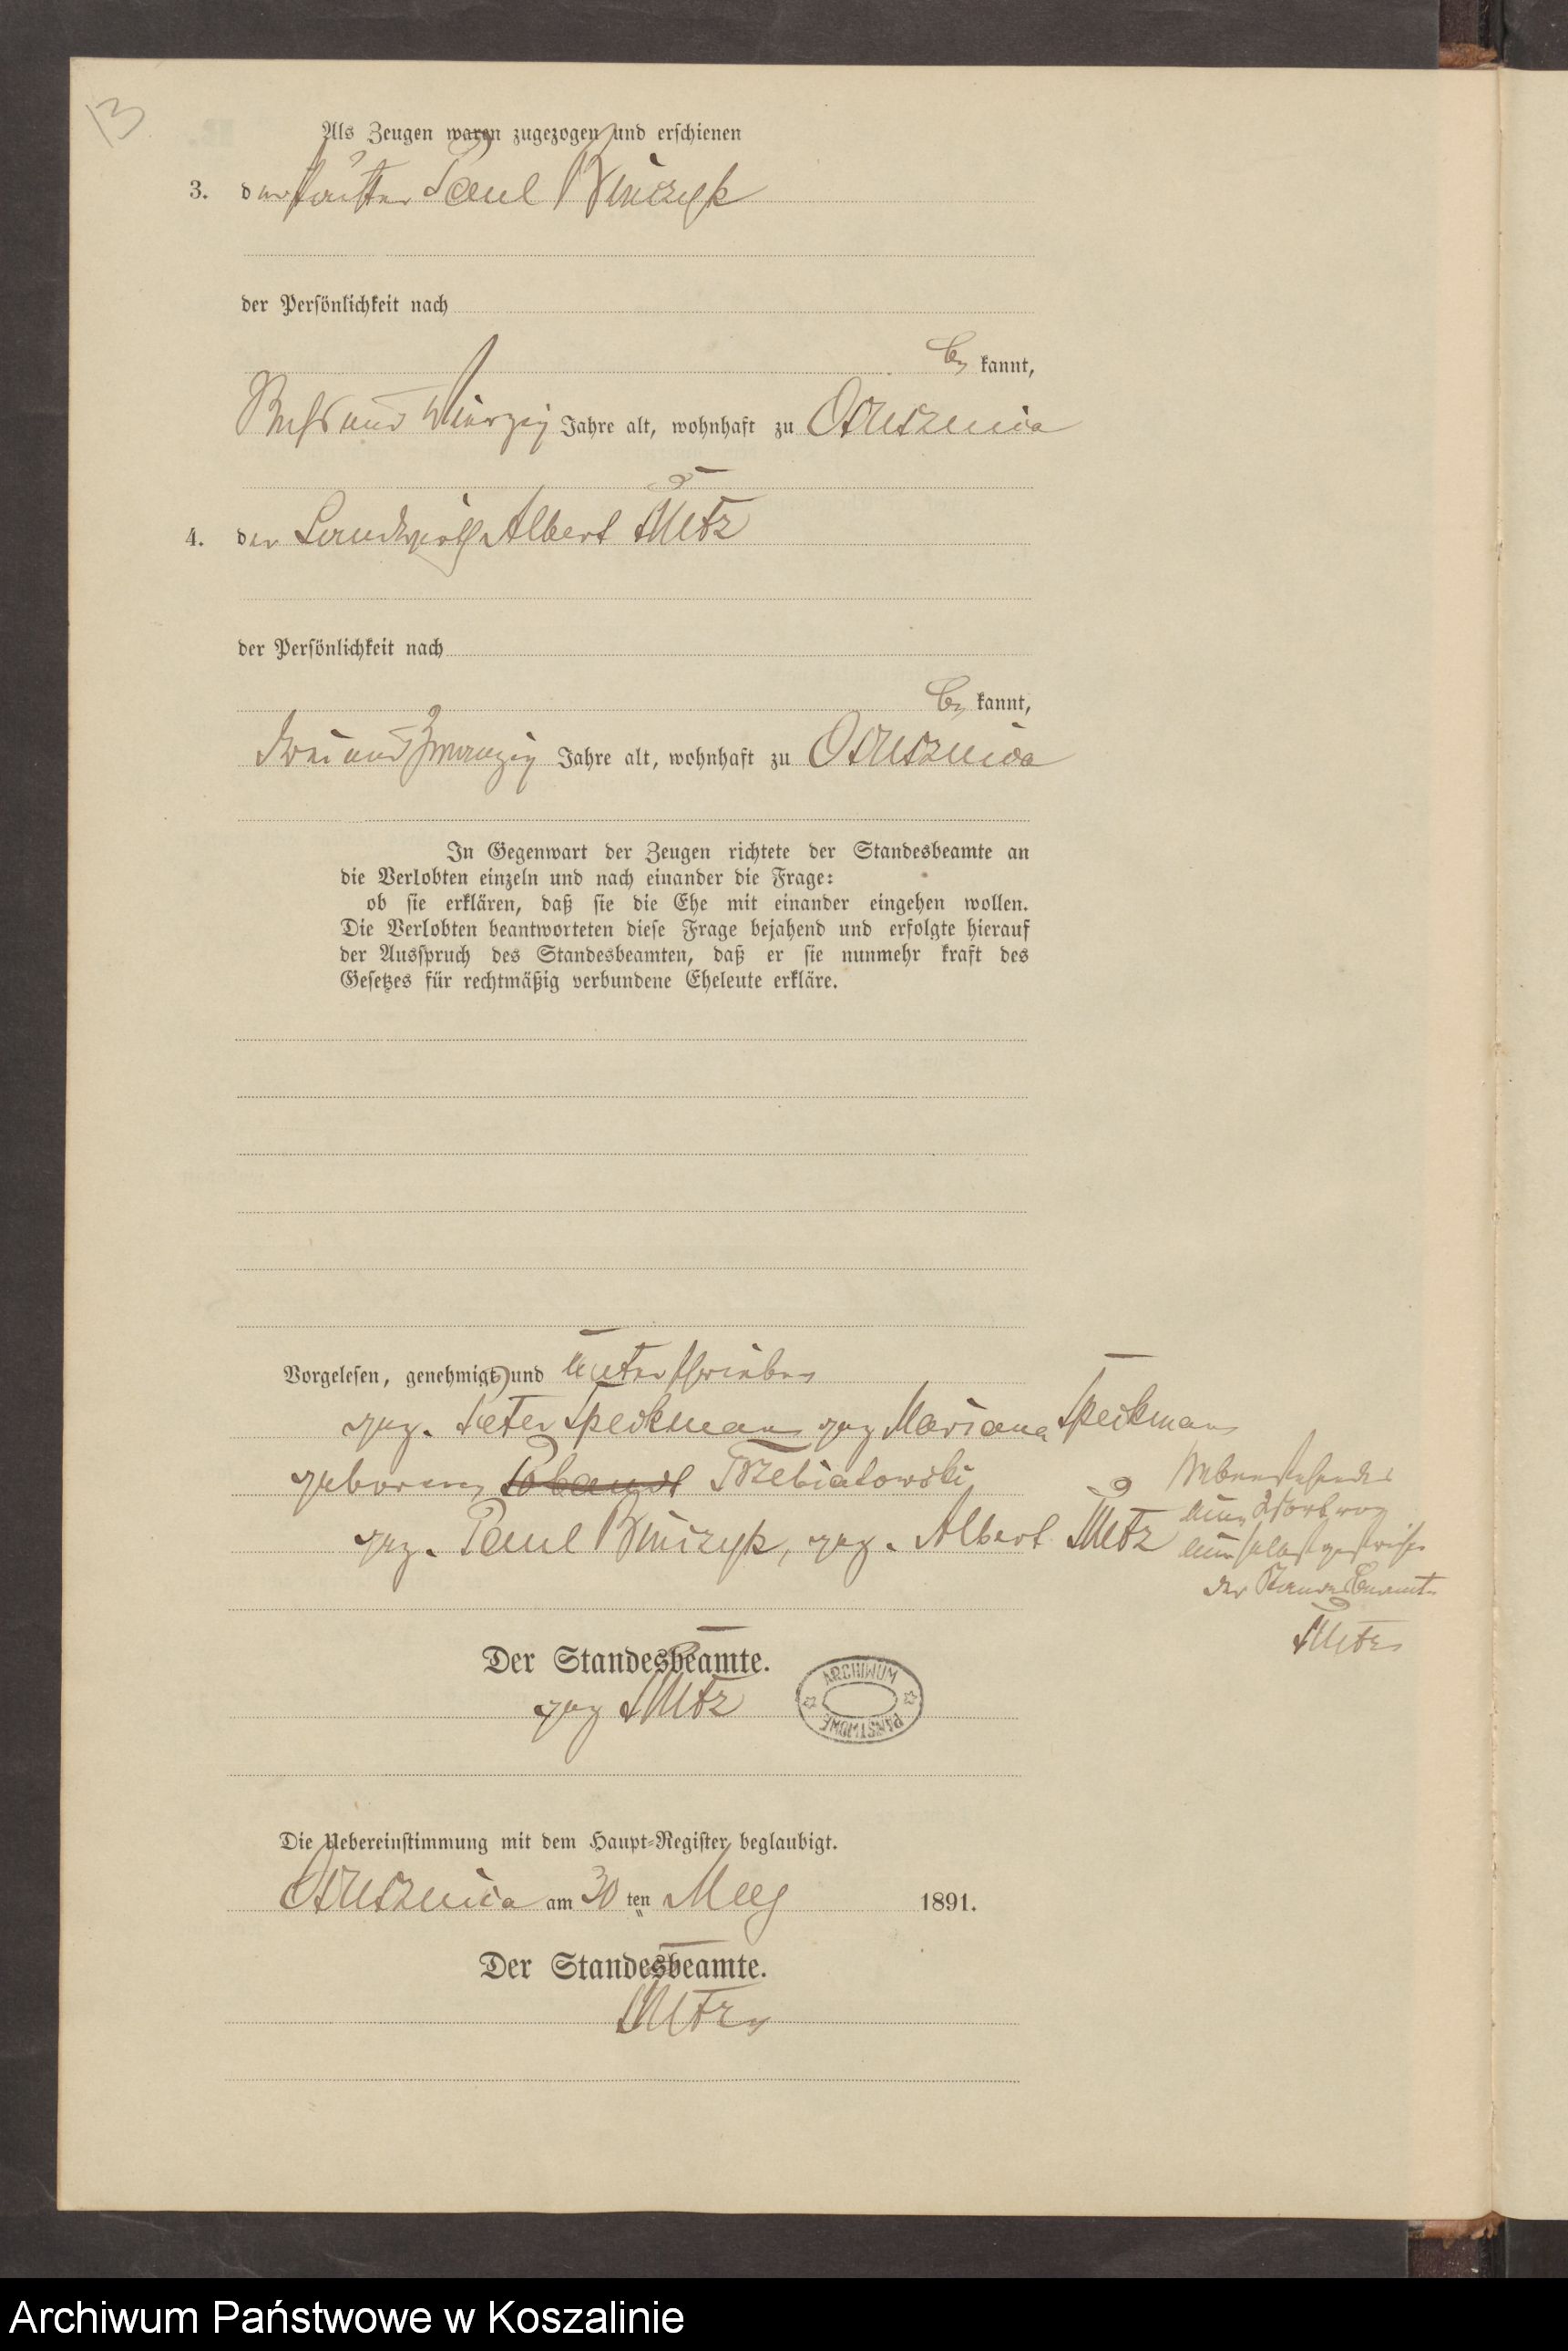 13
Als Zeugen waren zugezogen und erschienen
3. der Paul
der Persönlichkeit nach
be kannt,
und vierzig Jahre alt, wohnhaft zu Ostusznica
4. der Landwirth Albert
der Persönlichkeit nach
be kannt,
zwei und zwanzig Jahre alt, wohnhaft zu Ostusznica
In Gegenwart der Zeugen richtete der Standesbeamte an
die Verlobten einzeln und nach einander die Frage:
ob sie erklären, daß sie die Ehe mit einander eingehen wollen.
Die Verlobten beantworteten diese Frage bejahend und erfolgte hierauf
der Ausspruch des Standesbeamten, daß er sie nunmehr kraft des
Gesetzes für rechtmäßig verbundene Eheleute erkläre.
Vorgelesen, genehmigt und unterschrieben
gez. Peter Speckmann gez Mariana Speckmann
geborene Trzebiatowski
gez. Paul gez. Albert
Nebenstehendes
ein Wort
der Standesbeamte
Der Standesbeamte.
gez
ARCHIWUM
PAŃSTWOWE
Die Uebereinstimmung mit dem Haupt-Register beglaubigt.
Ostusznica am 30 ten 1891.
Der Standesbeamte.
Archiwum Państwowe w Koszalinie